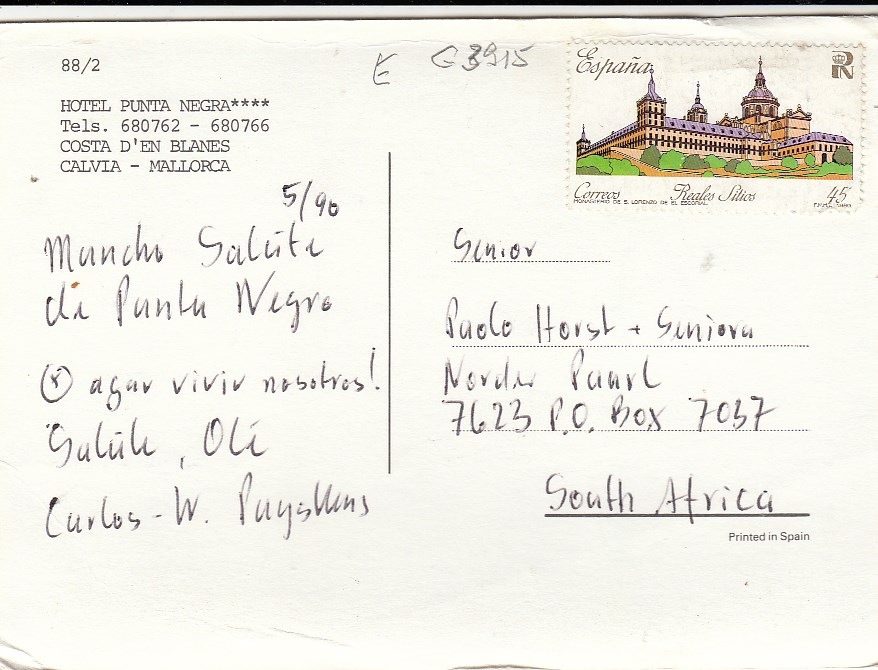 88/2
E G 3915
HOTEL PUNTA NEGRA****
Tels. 680762 - 680766
COSTA D'EN BLANES
CALVIA - MALLORCA
5/90
Muncho Salúte
di Punta Negra
agar vivir nosotros!
Salúte, Olé
Carlos - W.
España
Correos Reales Sitios 45
MONASTERIO DE S. LORENZO DE EL ESCORIAL
Senior
Paolo Horst + Seniora
Norder Paarl
7623 P.O. Box 7037
South Africa
Printed in Spain